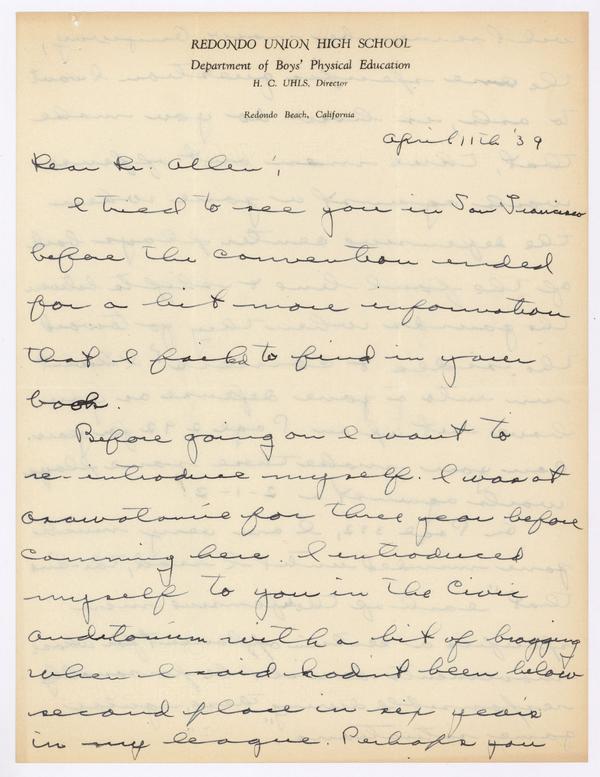 REDONDO UNION HIGH SCHOOL
Department of Boys' Physical Education
H. C. UHLS, Director
Redondo Beach, California
April 11th '39
Dear Dr. Allen;
I tried to see you in San Francisco
before the convention ended
for a bit more information
that I failed to find in your
book.
Before going on I want to
re-introduce myself. I was at
Osawatomie for three year before
comming here. I introduced
myself to you in the Civic
auditorium with a bit of bragging
when I said hadn't been below
second place in six years
in my league. Perhaps you